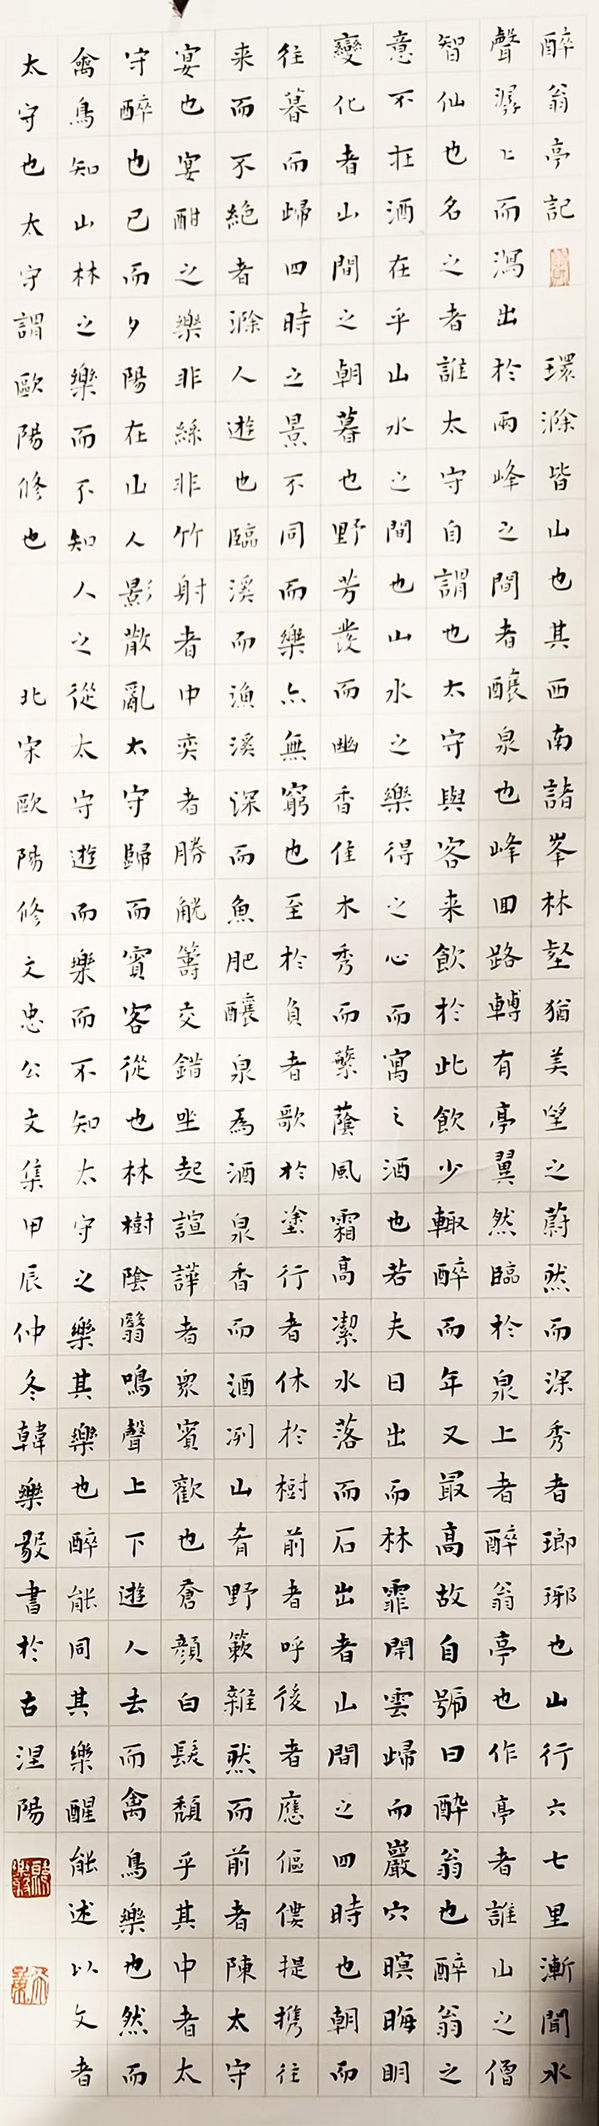 醉翁亭記 環滁皆山也其西南諸峯林壑猶美望之蔚然而深秀者瑯琊也山行六七里漸聞水
聲潺〻而瀉出於兩峰之間者釀泉也峰回路轉有亭翼然臨於泉上者醉翁亭也作亭者誰山之僧
智仙也名之者誰太守自謂也太守與客来飲於此飲少輒醉而年又最高故自號曰醉翁也醉翁之
意不在酒在乎山水之間也山水之樂得之心而寓之酒也若夫日出而林霏開雲歸而巖穴暝晦明
變化者山間之朝暮也野芳發而幽香佳木秀而繁蔭風霜高潔水落而石出者山間之四時也朝而
往暮而歸四時之景不同而樂亦無窮也至於負者歌於塗行者休於樹前者呼後者應傴僂提攜往
来而不絕者滁人遊也臨溪而漁溪深而魚肥釀泉為酒泉香而酒冽山肴野蔌雜然而前者陳太守
宴也宴酣之樂非絲非竹射者中奕者勝觥籌交錯坐起諠譁者眾賓歡也蒼顏白髮頹乎其中者太
守醉也已而夕陽在山人影散亂太守歸而賓客從也林樹陰翳鳴聲上下遊人去而禽鳥樂也然而
禽鳥知山林之樂而不知人之從太守遊而樂而不知太守之樂其樂也醉能同其樂醒能述以文者
太守也太守謂歐陽修也 北宋歐陽修文忠公文集甲辰仲冬韓樂毅書於古涅陽